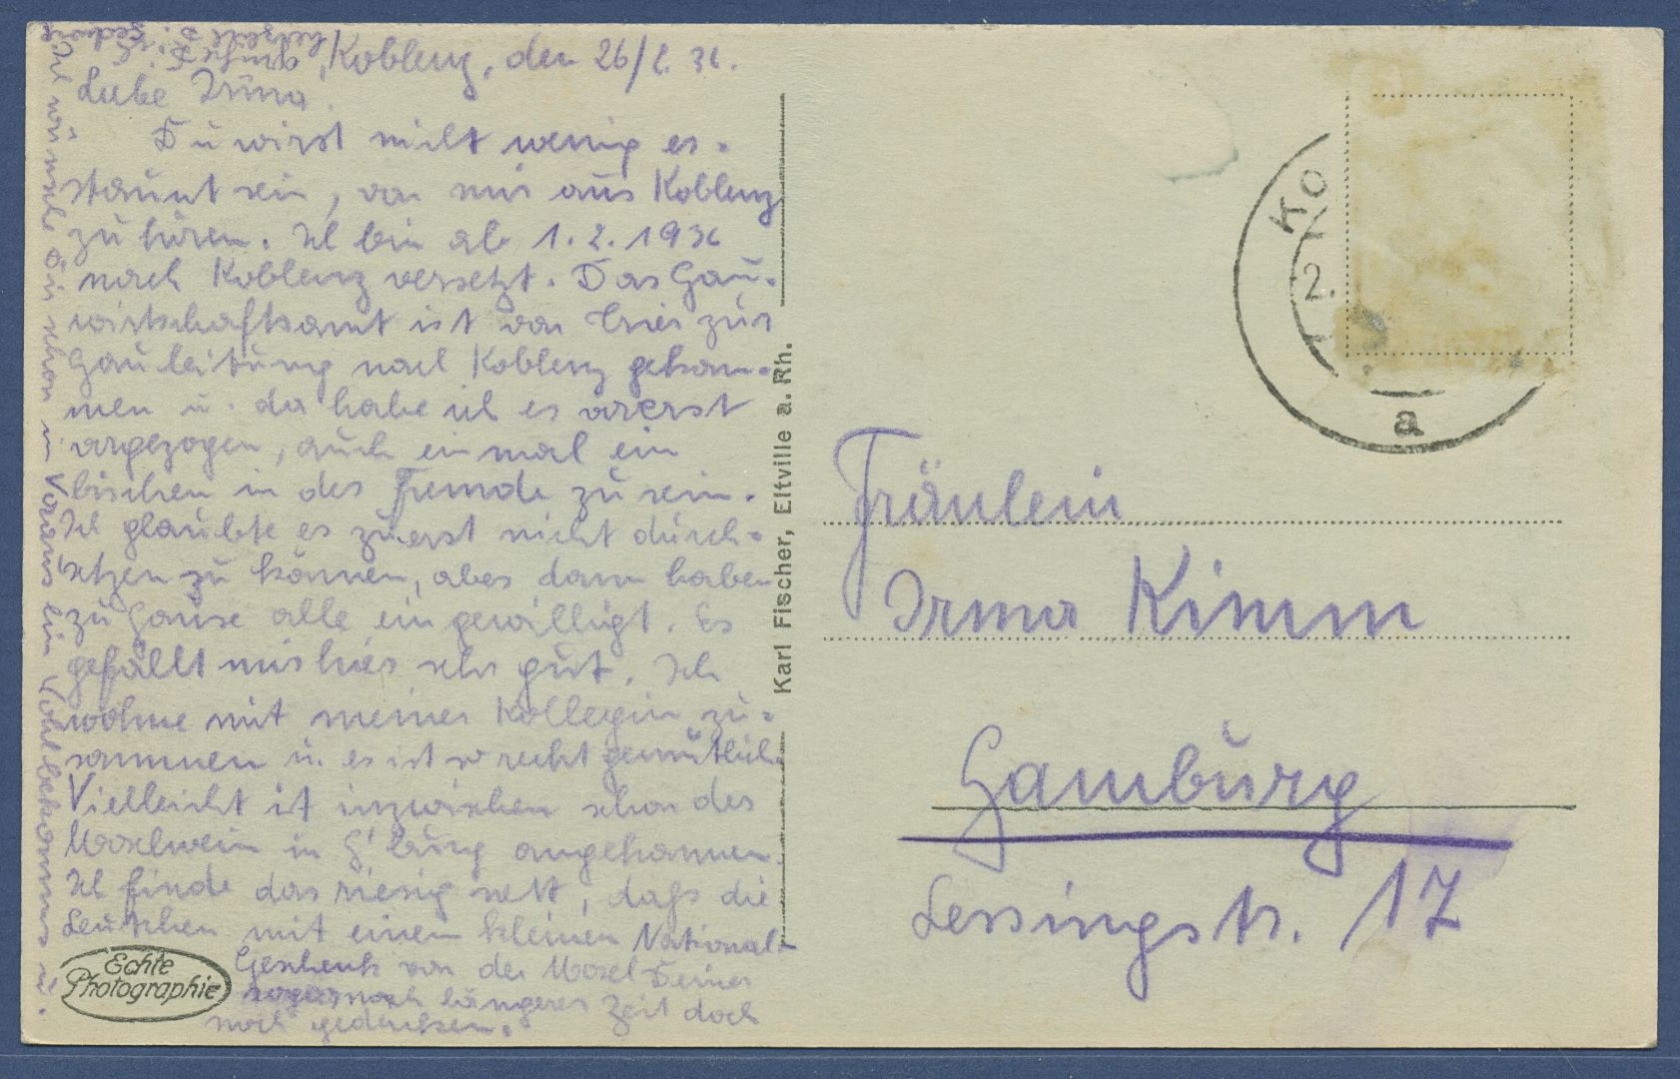 Koblenz, den 26/2. 36.
Liebe Irma.
Du wirst nicht wenig er-
staunt sein, von mir aus Koblenz
zu hören. Ich bin ab 1.2.1936
nach Koblenz versetzt. Das Gau-
wirtschaftsamt ist von Trier zur
Gauleitung nach Koblenz gekom-
men u. da habe ich es vorerst
vorgezogen, auch einmal ein
bischen in der Fremde zu sein.
Ich glaubte es zuerst nicht durch-
setzen zu können, aber dann haben
zu Hause alle eingewilligt. Es
gefällt mir hier sehr gut. Ich
wohne mit meiner Kollegin zu-
sammen u. es ist so recht gemütlich
Vielleicht ist inzwischen schon der
Moselwein in H'burg angekommen.
Ich finde das riesig nett, daß die
Leutchen mit einem kleinen National-
Geschenk von der Mosel Deiner
nach längerer Zeit doch
noch gedenken.
Ich wünsche Dir schon im Voraus ein Wohlbekommen u.
Echte
Photographie
Karl Fischer, Eltville a. Rh.
KO
2.
a
Fräulein
Irma Kimm
Hamburg
Lessingstr. 17